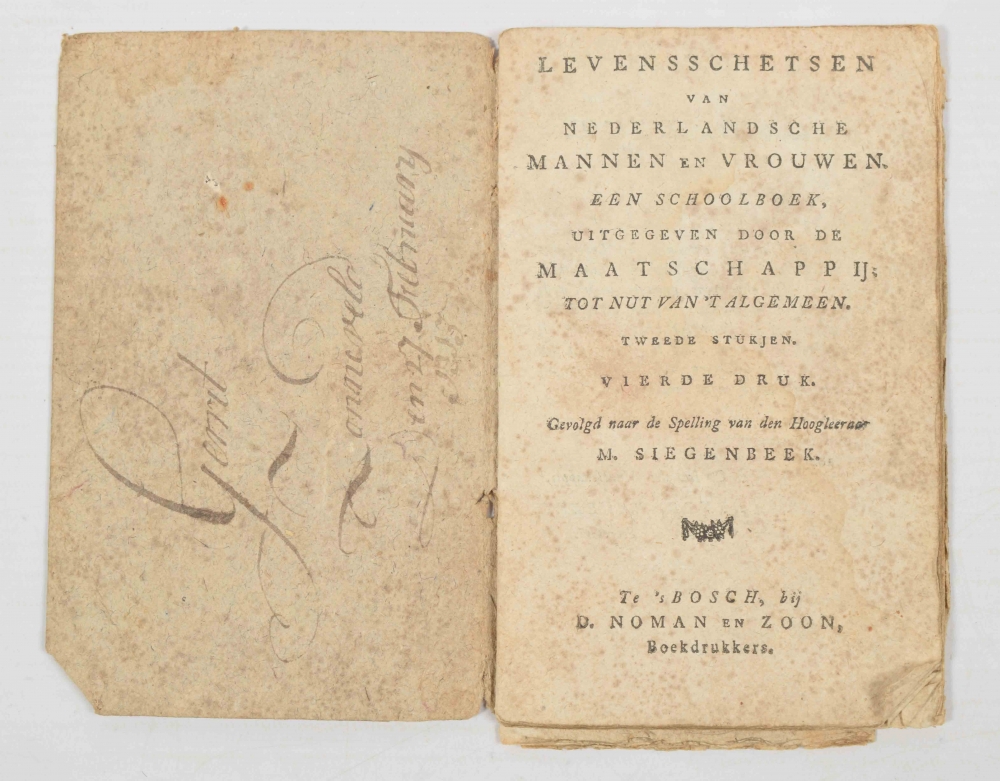 Gerrit
Zonneveld
Den 27 Februarij
LEVENSSCHETSEN
VAN
NEDERLANDSCHE
MANNEN EN VROUWEN.
EEN SCHOOLBOEK,
UITGEGEVEN DOOR DE
MAATSCHAPPIJ;
TOT NUT VAN 'T ALGEMEEN.
TWEEDE STUKJEN.
VIERDE DRUK.
Gevolgd naar de Spelling van den Hoogleeraar
M. SIEGENBEEK.
Te 's BOSCH, bij
D. NOMAN EN ZOON,
Boekdrukkers.